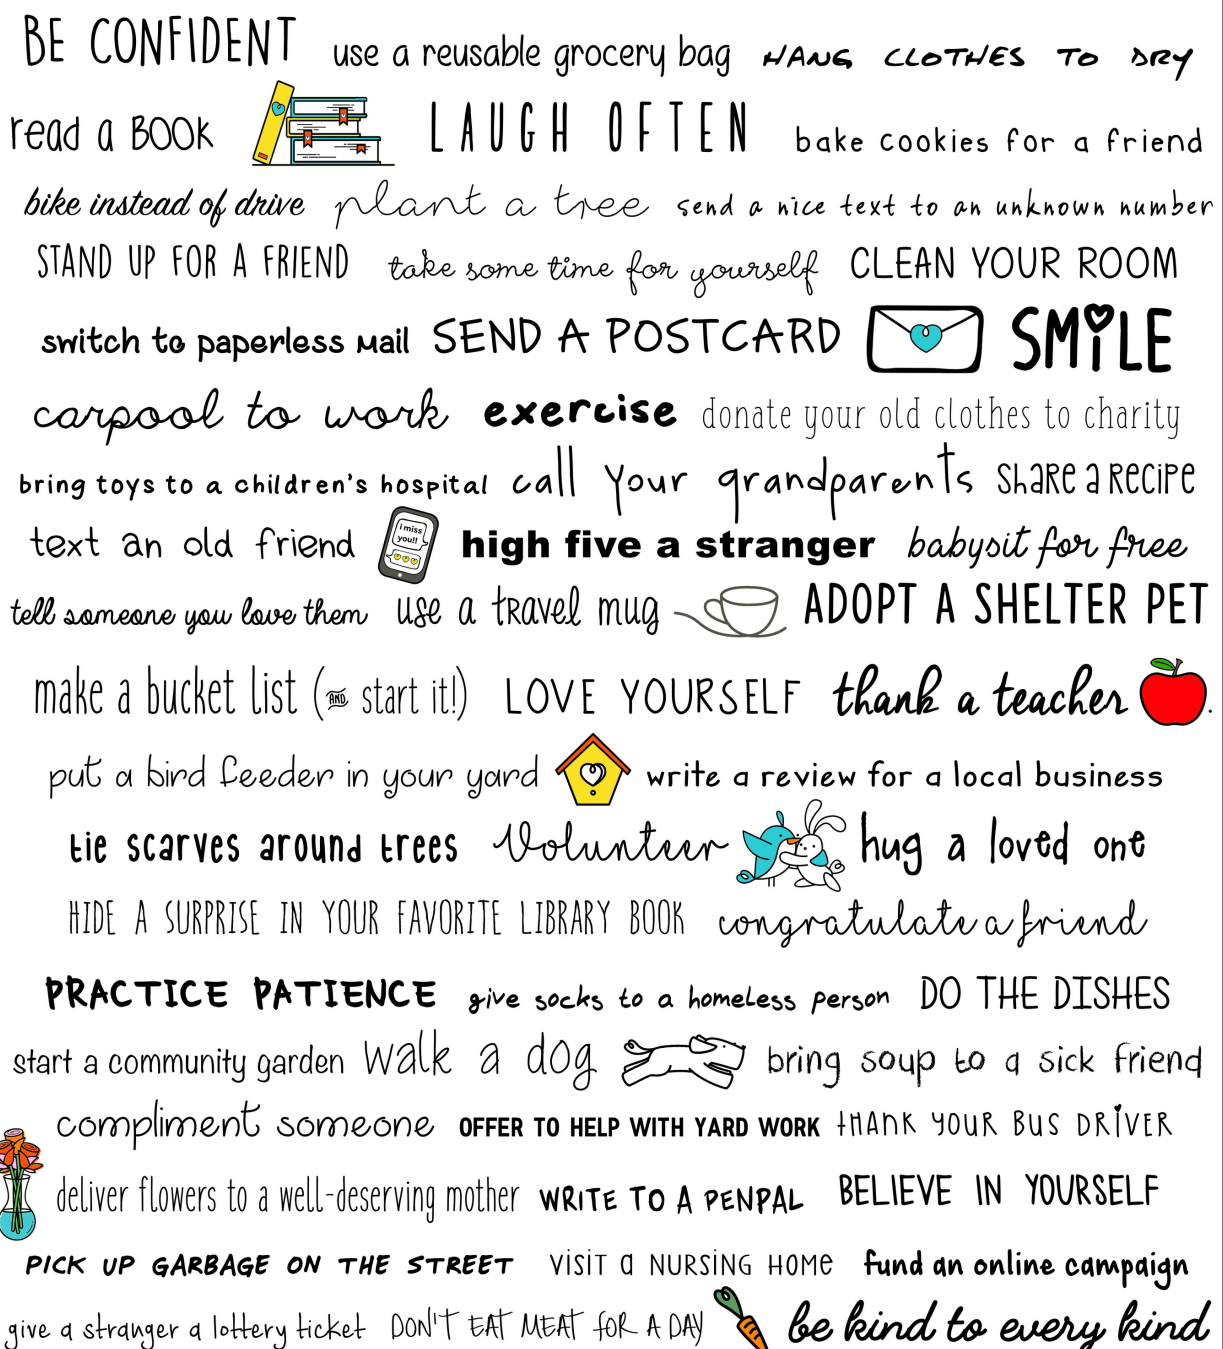 BE CONFIDENT use a reusable grocery bag HANG CLOTHES TO DRY
read a BOOK LAUGH OFTEN bake cookies for a friend
bike instead of drive plant a tree send a nice text to an unknown number
STAND UP FOR A FRIEND take some time for yourself CLEAN YOUR ROOM
switch to paperless mail SEND A POSTCARD SMiLE
carpool to work exercise donate your old clothes to charity
bring toys to a children's hospital call your grandparents SHARE A RECIPE
text an old friend i miss you!! high five a stranger babysit for free
tell someone you love them use a travel mug ADOPT A SHELTER PET
make a bucket list (AND start it!) LOVE YOURSELF thank a teacher.
put a bird feeder in your yard write a review for a local business
tie scarves around trees Volunteer hug a loved one
HIDE A SURPRISE IN YOUR FAVORITE LIBRARY BOOK congratulate a friend
PRACTICE PATIENCE give socks to a homeless person DO THE DISHES
start a community garden walk a dog bring soup to a sick friend
compliment someone OFFER TO HELP WITH YARD WORK THANK YOUR BUS DRiVER
deliver flowers to a well-deserving mother WRITE TO A PENPAL BELIEVE IN YOURSELF
PICK UP GARBAGE ON THE STREET VISIT a NURSING HOME fund an online campaign
give a stranger a lottery ticket DON'T EAT MEAT FOR A DAY be kind to every kind